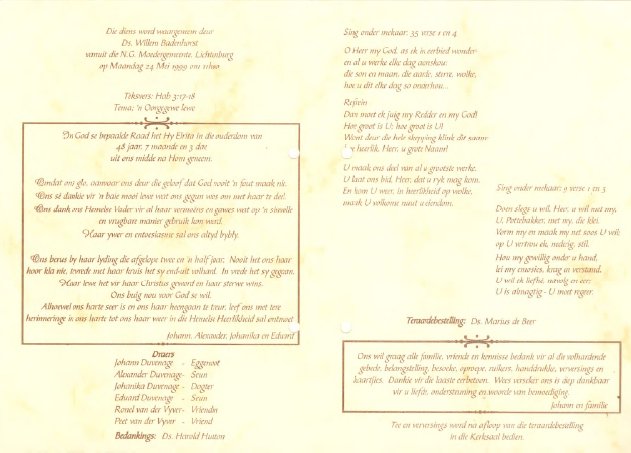 Die diens word waargeneem deur
Ds. Willem Badenhorst
vanuit die N.G. Moedergemeente, Lichtenburg
op Maandag 24 Mei 1999 om 11h00
Teksvers: Hab 3:17-18
Tema: 'n Oorgegewe lewe
In God se bepaalde Raad het Hy Elrita in die ouderdom van
48 jaar, 7 maande en 3 dae
uit ons midde na Hom geneem.
Omdat ons glo, aanvaar ons deur die geloof dat God nooit 'n fout maak nie.
Ons sê dankie vir 'n baie mooi lewe wat ons gegun was om met haar te deel.
Ons dank ons Hemelse Vader vir al haar vermoëns en gawes wat op 'n sinvolle
en vrugbare manier gebruik kon word.
Haar ywer en entoesiasme sal ons altyd bybly.
Ons berus by haar lyding die afgelope twee en 'n half jaar. Nooit het ons haar
hoor kla nie, tevrede met haar kruis het sy end-uit volhard. In vrede het sy gegaan.
Haar lewe het vir haar Christus geword en haar sterwe wins.
Ons buig nou voor God se wil.
Alhoewel ons harte seer is en ons haar heengaan te treur, leef ons met tere
herinneringe in ons harte tot ons haar weer in die Hemelse Heerlikheid sal ontmoet
Johann, Alexander, Johanika en Eduard
Draers
Johann Duvenage - Eggenoot
Alexander Duvenage - Seun
Johanika Duvenage - Dogter
Eduard Duvenage - Seun
Ronel van der Vyver - Vriendin
Peet van der Vyver - Vriend
Bedankings: Ds. Harold Hutton
Sing onder mekaar: 35 verse 1 en 4
O Heer my God, as ek in eerbied wonder
en al u werke elke dag aanskou:
die son en maan, die aarde, sterre, wolke,
hoe u dit elke dag so onderhou...
Refrein
Dan moet ek juig my Redder en my God!
Hoe groot is U; hoe groot is U!
Want deur die hele skepping klink dit saam:
Hoe heerlik, Heer, u grote Naam!
U maak ons deel van al u grootste werke.
U laat ons bid, Heer, dat u ryk mag kom.
En kom U weer, in heerlikheid op wolke,
maak U volkome nuut u eiendom.
Sing onder mekaar: 9 verse 1 en 3
Doen slegs u wil, Heer, u wil met my,
U, Pottebakker, met my, die klei.
Vorm my en maak my net soos U wil;
op U vertrou ek, nederig, stil.
Hou my gewillig onder u hand,
lei my emosies, krag en verstand.
U wil ek liefhê, navolg en eer;
U is almagtig - U moet regeer.
Teraardebestelling: Ds. Marius de Beer
Ons wil graag alle familie, vriende en kennisse bedank vir al die volhardende
gebede, belangstelling, besoeke, oproepe, ruikers, handdrukke, verversings en
kaartjies. Dankie vir die laaste eerbetoon. Wees verseker ons is diep dankbaar
vir u liefde, ondersteuning en woorde van bemoediging.
Johann en familie
Tee en verversings word na afloop van die teraardebestelling
in die Kerksaal bedien.